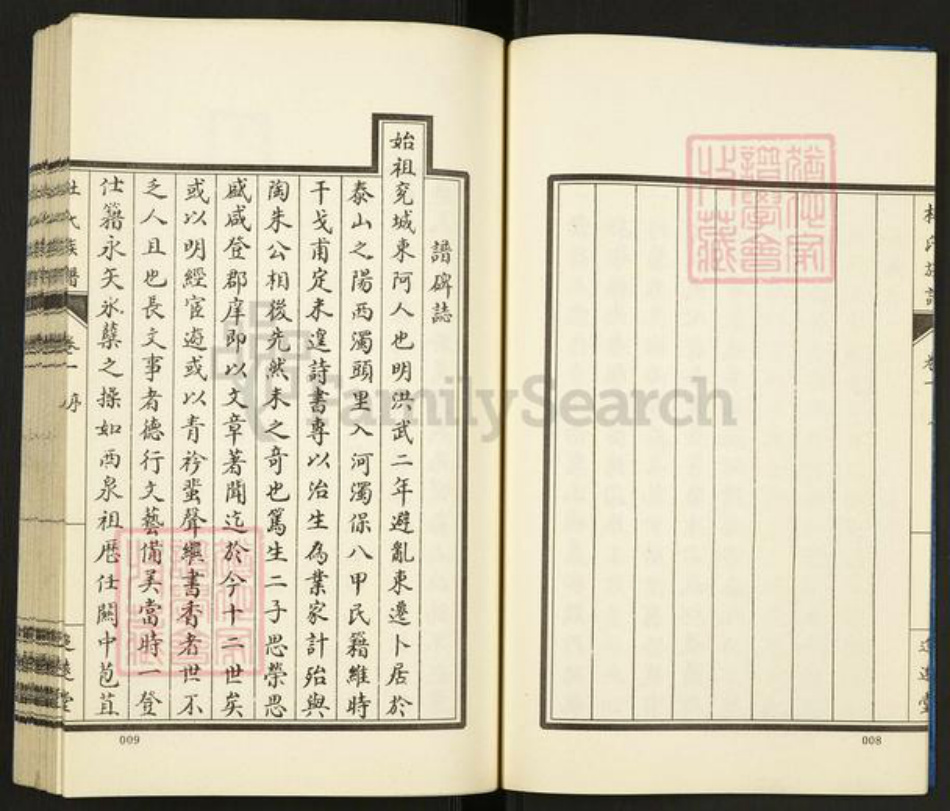 譜碑誌
始祖兗城東阿人也明洪武二年避亂東遷卜居於
泰山之陽西濁頭里入河濁保八甲民籍維時
干戈甫定未遑詩書專以治生為業家計殆與
陶朱公相後先然未之奇也篤生二子思榮思
咸登郡庠即以文章著聞迄於今十二世矣
或以明經宦遊或以青衿蜚聲繼書香者世不
乏人且也長文事者德行文藝備美當時一登
仕籍永矢氷蘗之操如西泉祖歷任關中苞苴
杜氏族譜
卷一
序
009
008
FamilySearch